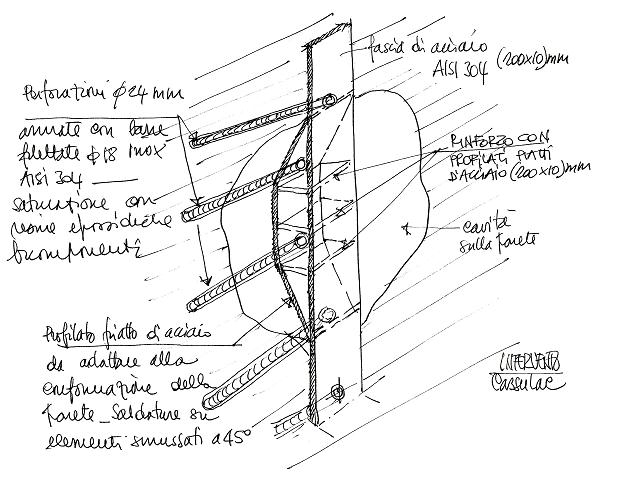 fascia di acciaio
AISI 304 (200x10)mm
Perforazioni φ 24 mm
armate con barre
filettate φ 18 inox
AISI 304
saturazione con
resine epossidiche
bicomponenti
RINFORZO CON
PROFILATI PIATTI
D'ACCIAIO (200x10)mm
cavità
sulla parete
Profilato piatto di acciaio
da adattare alla
conformazione della
parete_Saldature su
elementi smussati a 45°
INTERVENTO